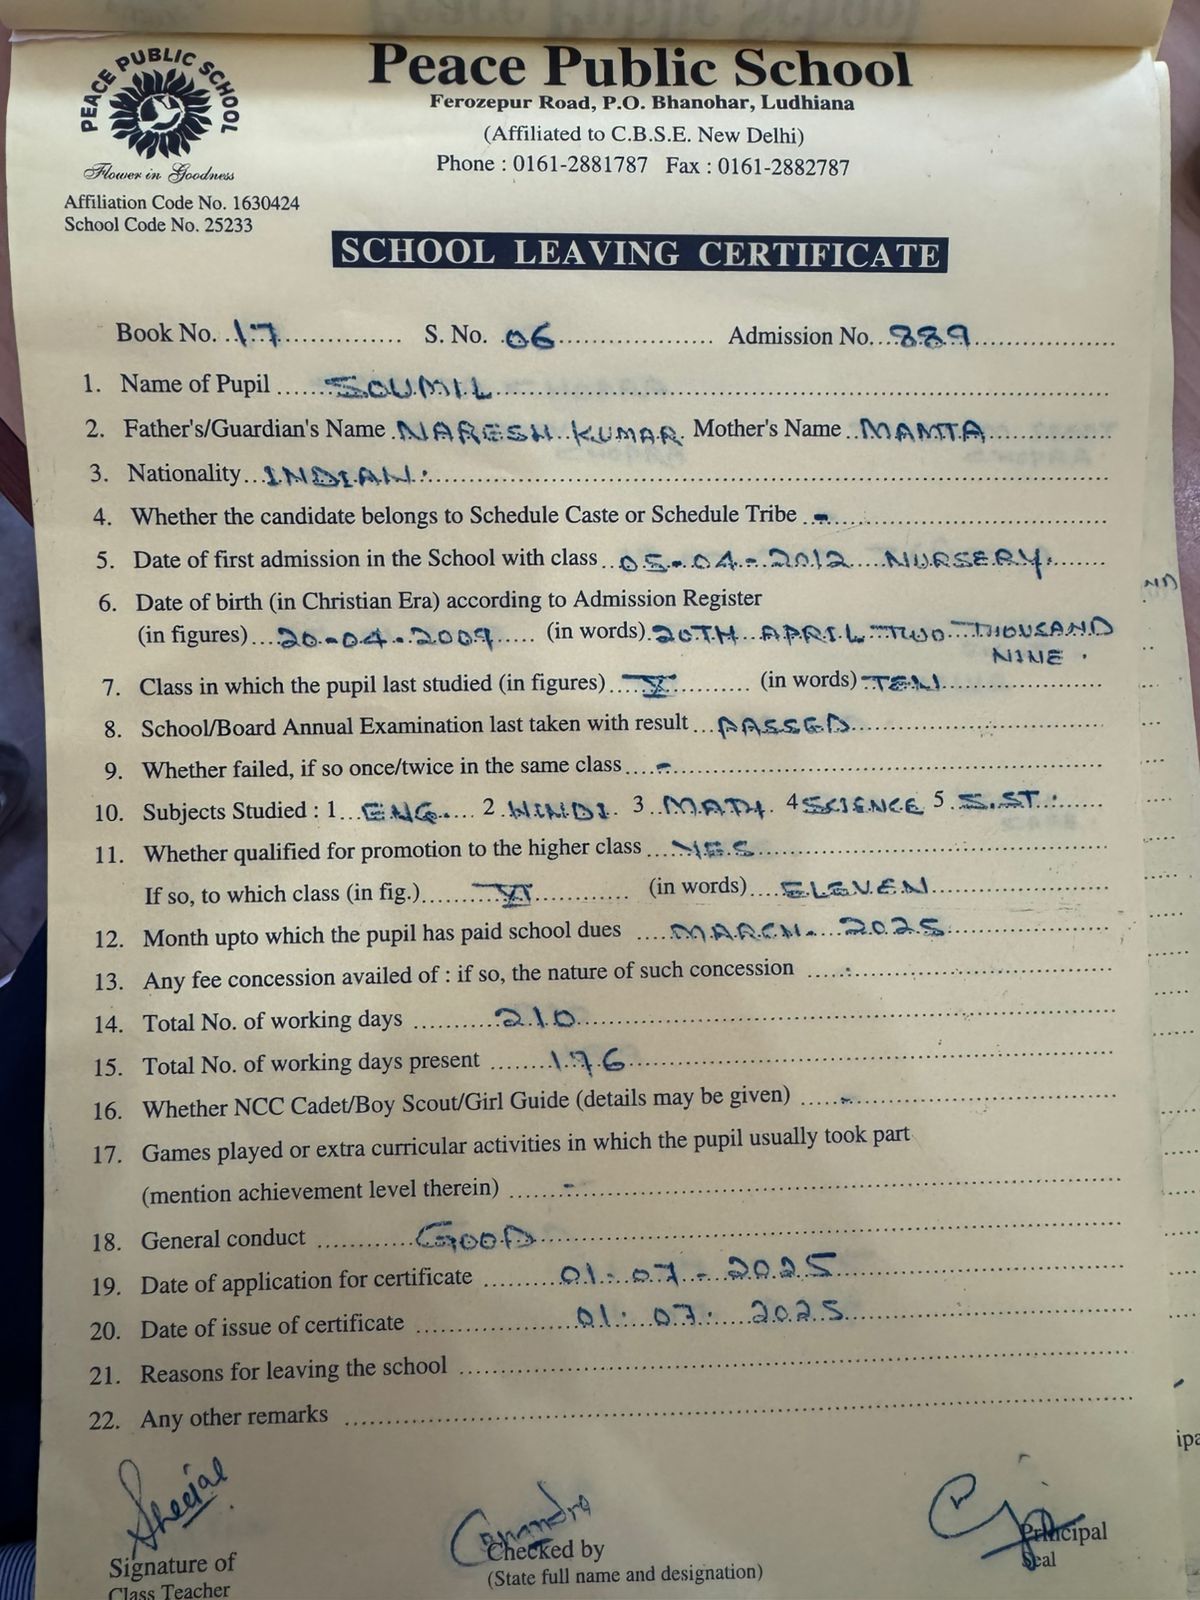 Peace Public School
PEACE PUBLIC SCHOOL
Ferozepur Road, P.O. Bhanohar, Ludhiana
(Affiliated to C.B.S.E. New Delhi)
Phone : 0161-2881787 Fax : 0161-2882787
Flower in Goodness
Affiliation Code No. 1630424
School Code No. 25233
SCHOOL LEAVING CERTIFICATE
Book No. 17 S. No. 06 Admission No. 889
1. Name of Pupil SOUMIL
2. Father's/Guardian's Name NARESH KUMAR Mother's Name MAMTA
3. Nationality INDIAN.
4. Whether the candidate belongs to Schedule Caste or Schedule Tribe -
5. Date of first admission in the School with class 05-04-2012 NURSERY.
6. Date of birth (in Christian Era) according to Admission Register
(in figures) 20-04-2009 (in words) 20TH APRIL TWO THOUSAND
NINE.
7. Class in which the pupil last studied (in figures) X (in words) TEN
8. School/Board Annual Examination last taken with result PASSED
9. Whether failed, if so once/twice in the same class -
10. Subjects Studied : 1 ENG. 2 HINDI 3 MATH 4 SCIENCE 5 S.ST.
11. Whether qualified for promotion to the higher class YES
If so, to which class (in fig.) XI (in words) ELEVEN
12. Month upto which the pupil has paid school dues MARCH. 2025
13. Any fee concession availed of : if so, the nature of such concession -
14. Total No. of working days 210
15. Total No. of working days present 176
16. Whether NCC Cadet/Boy Scout/Girl Guide (details may be given) -
17. Games played or extra curricular activities in which the pupil usually took part
(mention achievement level therein) -
18. General conduct GOOD
19. Date of application for certificate 01-07-2025
20. Date of issue of certificate 01.07.2025
21. Reasons for leaving the school
22. Any other remarks
Signature of
Class Teacher
Checked by
(State full name and designation)
Principal
Seal